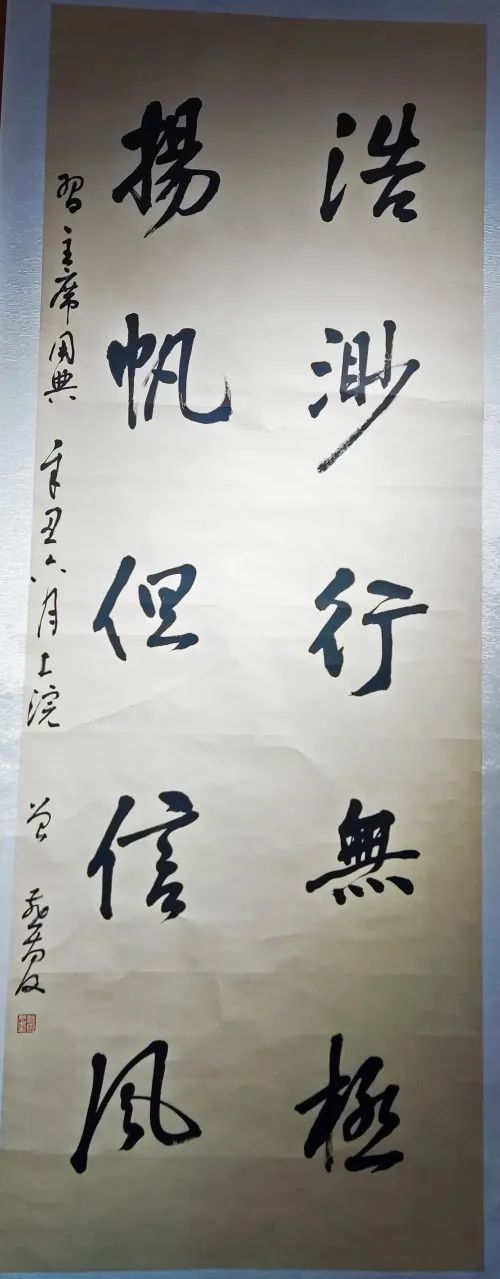 浩渺行無極
揚帆但信風
習主席用典 辛丑六月上浣 曾